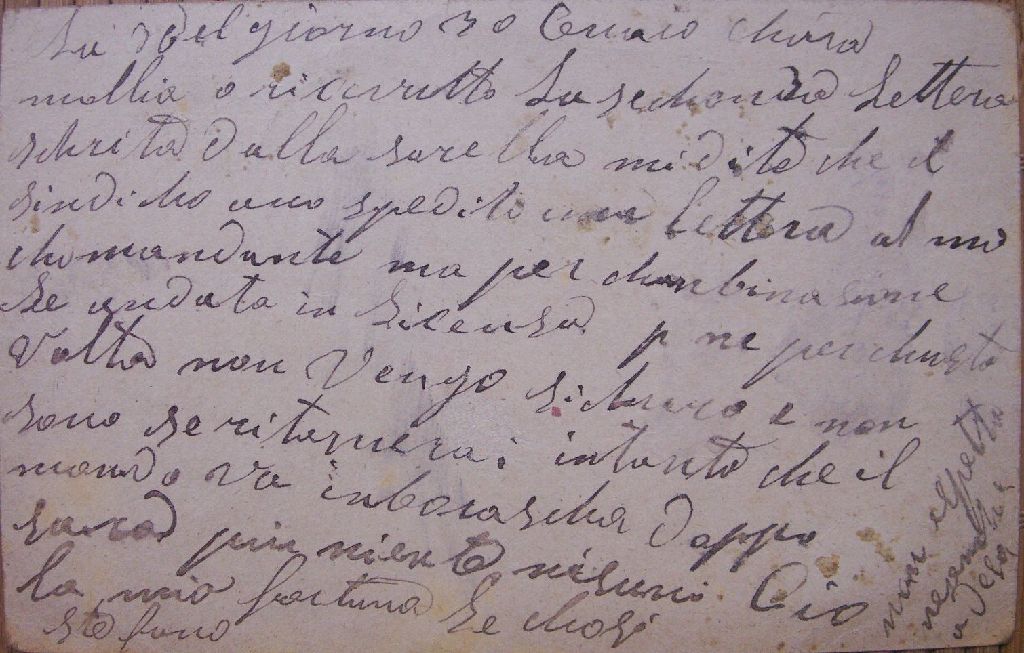 Lu del giorno 30 Cenaio chara
mollia o ricevutto La sechonda Lettera
schrita dalla sorella mi dite che il
sindicho ano spedito una lettera al mio
chomandante ma per chonbinasione
Le andata in Licensa p ne per chuesta
Volta non Vengo sichuro e non
sono se ritornerai intanto che il
mondo va inborascha doppo
sarad piu niente nisuni Cio
la mio fortuna Le chosi
Stefano
non aspetta